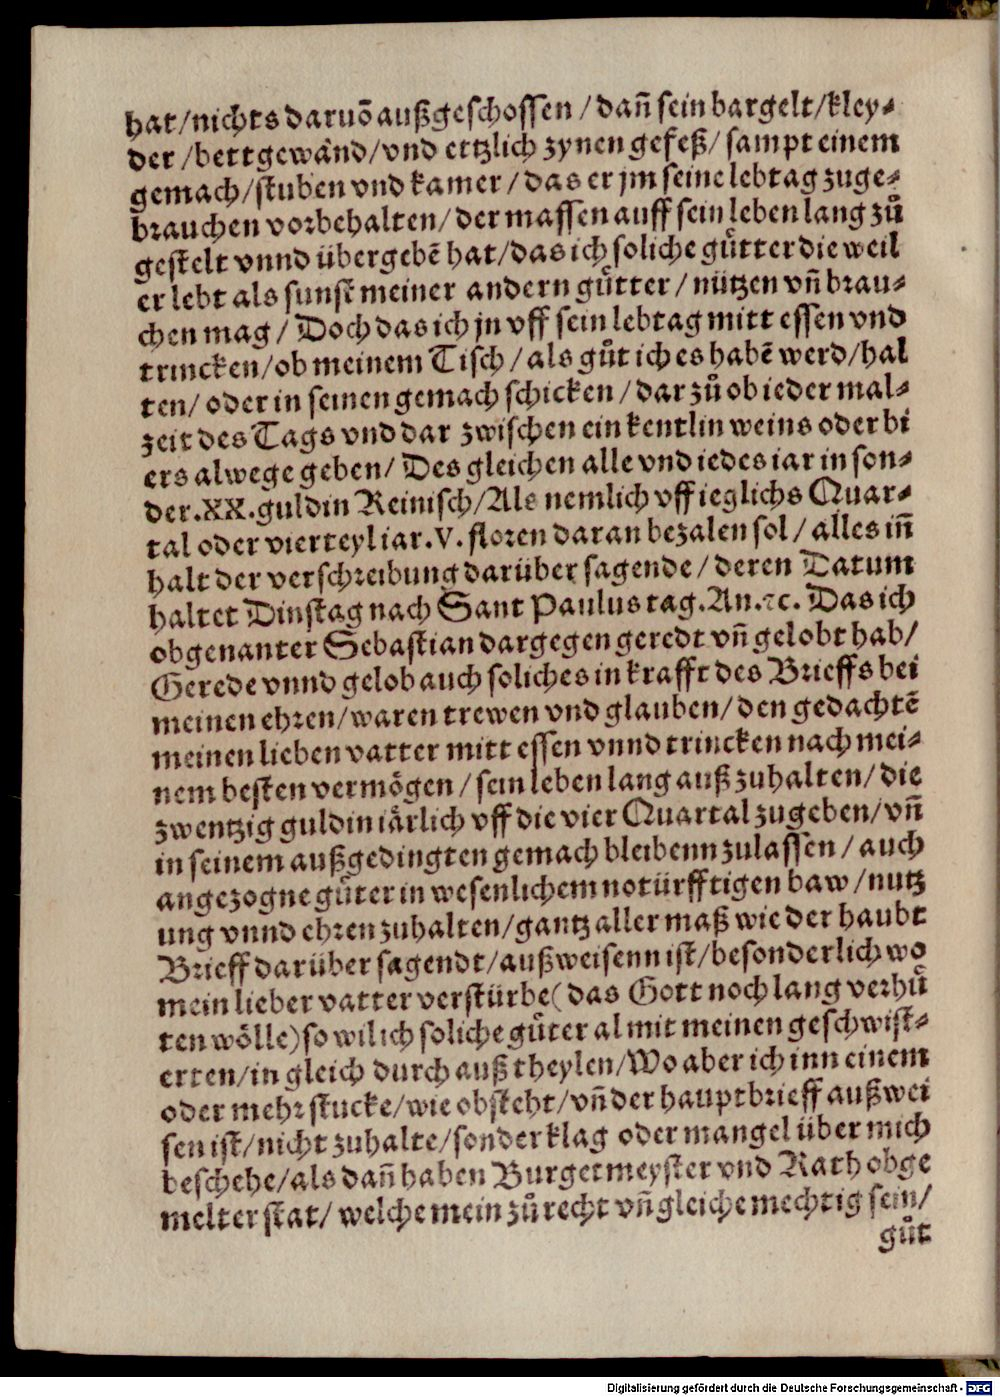 hat/nichts daruõ außgeschossen / dañ sein bargelt/kley⸗
der /bettgewånd/vnd ertzlich zynen gefeß/ sampt einem
gemach/stuben vnd kamer / das er jm seine lebtag zuge⸗
brauchen vorbehalten/ der massen auff sein leben lang zů
gestelt vnnd übergebẽ hat/das ich soliche gůtter die weil
er lebt als sunst meiner andern gůtter / nützen vñ brau⸗
chen mag / Doch das ich jn vff sein lebtag mitt essen vnd
trincken/ob meinem Tisch / als gůt ich es habẽ werd/hal
ten/ oder in seinen gemach schicken / dar zů ob ieder mal⸗
zeit des Tags vnd dar zwischen ein kentlin weins oder bi
ers alwege geben/ Des gleichen alle vnd iedes iar in son⸗
der.XX.guldin Reinisch/Als nemlich vff ieglichs Quar⸗
tal oder vierteyl iar.V. floren daran bezalen sol / alles iñ
halt der verschreibung darüber sagende / deren Datum
haltet Dinstag nach Sant Paulus tag.An.⁊c. Das ich
obgenanter Sebastian dargegen geredt vñ gelobt hab/
Gerede vnnd gelob auch soliches in krafft des Brieffs bei
meinen ehren/waren trewen vnd glauben/den gedachtẽ
meinen lieben vatter mitt essen vnnd trincken nach mei⸗
nem besten vermögen / sein leben lang auß zuhalten/ die
zwentzig guldin iårlich vff die vier Quartal zugeben/vñ
in seinem außgedingten gemach bleibenn zulassen / auch
angezogne gůter in wesenlichem notürfftigen baw /nutz
ung vnnd ehren zuhalten/gantz aller maß wie der haubt
Brieff darüber sagendt/außweisenn ist/besonderlich wo
mein lieber vatter verstürbe(das Gott noch lang verhů
ten wölle)so wil ich soliche gůter al mit meinen geschwist⸗
erten/in gleich durch auß theylen/Wo aber ich inn einem
oder mehr stucke/wie obsteht/vñ der hauptbrieff außwei
sen ist/nicht zuhalte/sonder klag oder mangel über mich
beschehe/als dañ haben Burgetmeyster vnd Rath obge
melter stat/ welche mein zů recht vñ gleiche mechtig sein/
gůt
Digitalisierung gefördert durch die Deutsche Forschungsgemeinschaft - DFG